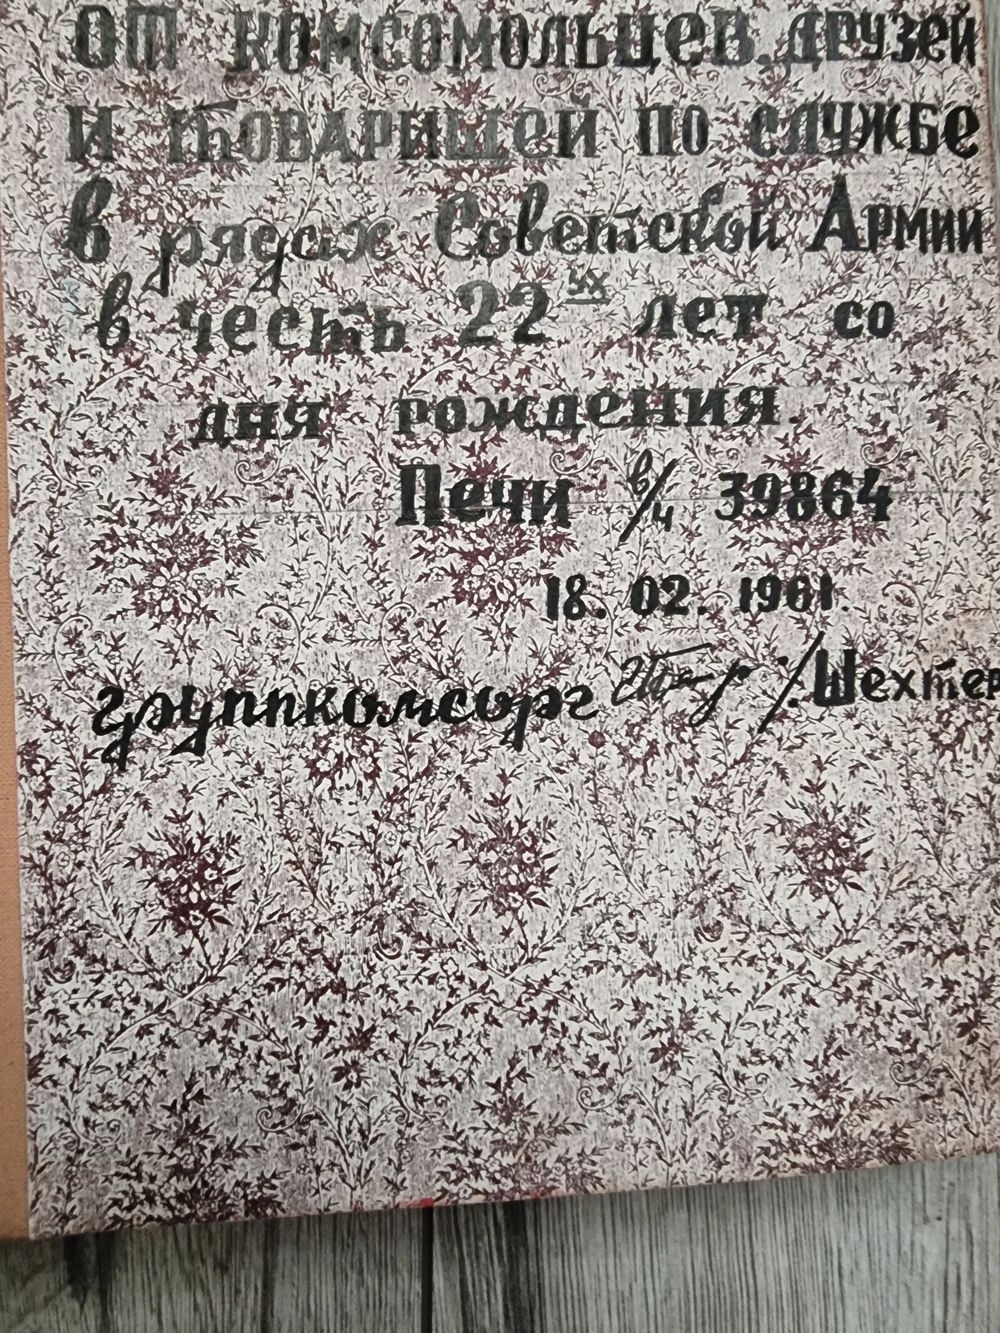 от комсомольцев, друзей
и товарищей по службе
в рядах Советской Армии
в честь 22ух лет со
дня рождения.
Печи в/ч 39864
18. 02. 1961.
группкомсорг /Шехтер